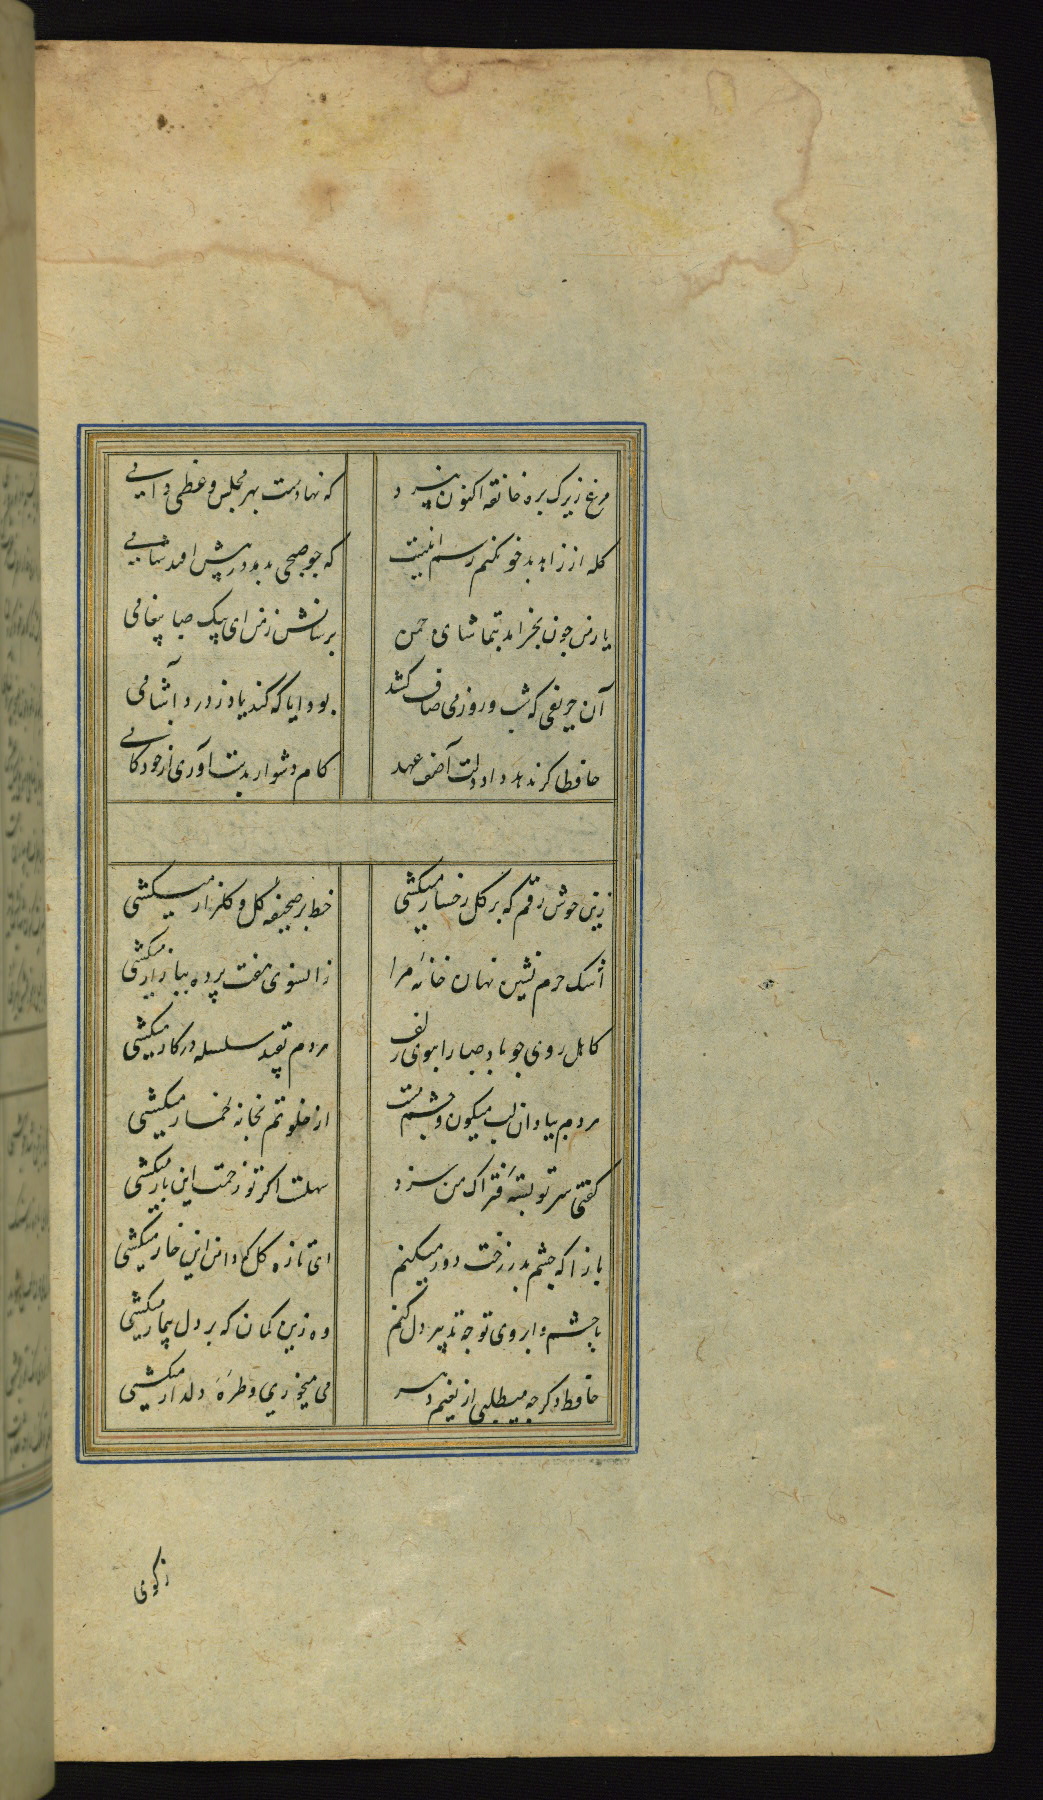 مرغ زیرک بره خانقه اکنون نپرد
که نهادست بهر مجلس وعظی دامی
کله از زاهد بدخو نکنم رسم اینست
که جو صبحی بدمد در پیش افتد شامی
یار من جون بخرامد بتماشای جمن
برسانش ز من ای پیک صبا پیغامی
آن حریفی که شب و روز می صاف کشد
بود ایا که کند یاد ز درد آشامی
حافظا کر ندهد داد دلت آصف عهد
کام دشوار بدست آوری از خودکامی
زین خوش رقم که بر کل رخسار میکشی
خط بر صحیفه کل و کلزار میکشی
اشک حرم نشین نهان خانهٔ مرا
زانسوی هفت پرده ببازار میکشی
کاهل روی جو باد صبا را ببوی زلف
هر دم بقید سلسله در کار میکشی
هر دم بیاد ان لب میکون و چشم مست
از خلوتم بخانه خمار میکشی
کفتی سر تو بستهٔ فتراک من سزد
سهلست اکر تو زحمت این بار میکشی
باز ا که چشم بد ز رخت دور میکنم
ای تازه کل که دامن ازین خار میکشی
با چشم و ابروی تو جه تدبیر دل کنم
وه زین کمان که بر دل بیمار میکشی
حافظ دکر جه میطلبی از نعیم دهر
می میخوری و طرهٔ دلدار میکشی
ز کوی